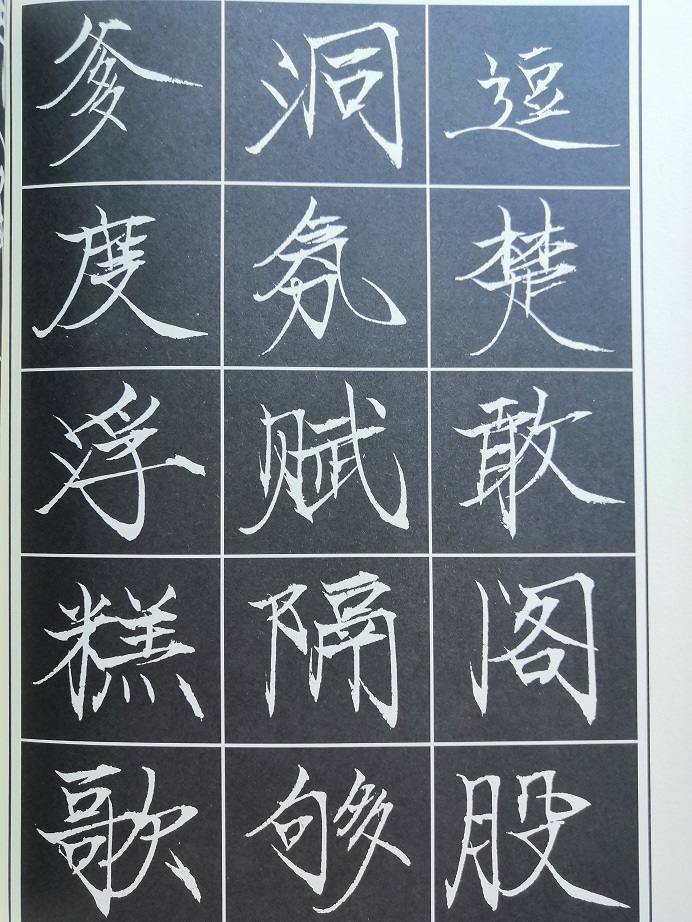 爹洞逗
度氛焚
浮赋敢
糕隔阁
歌够股